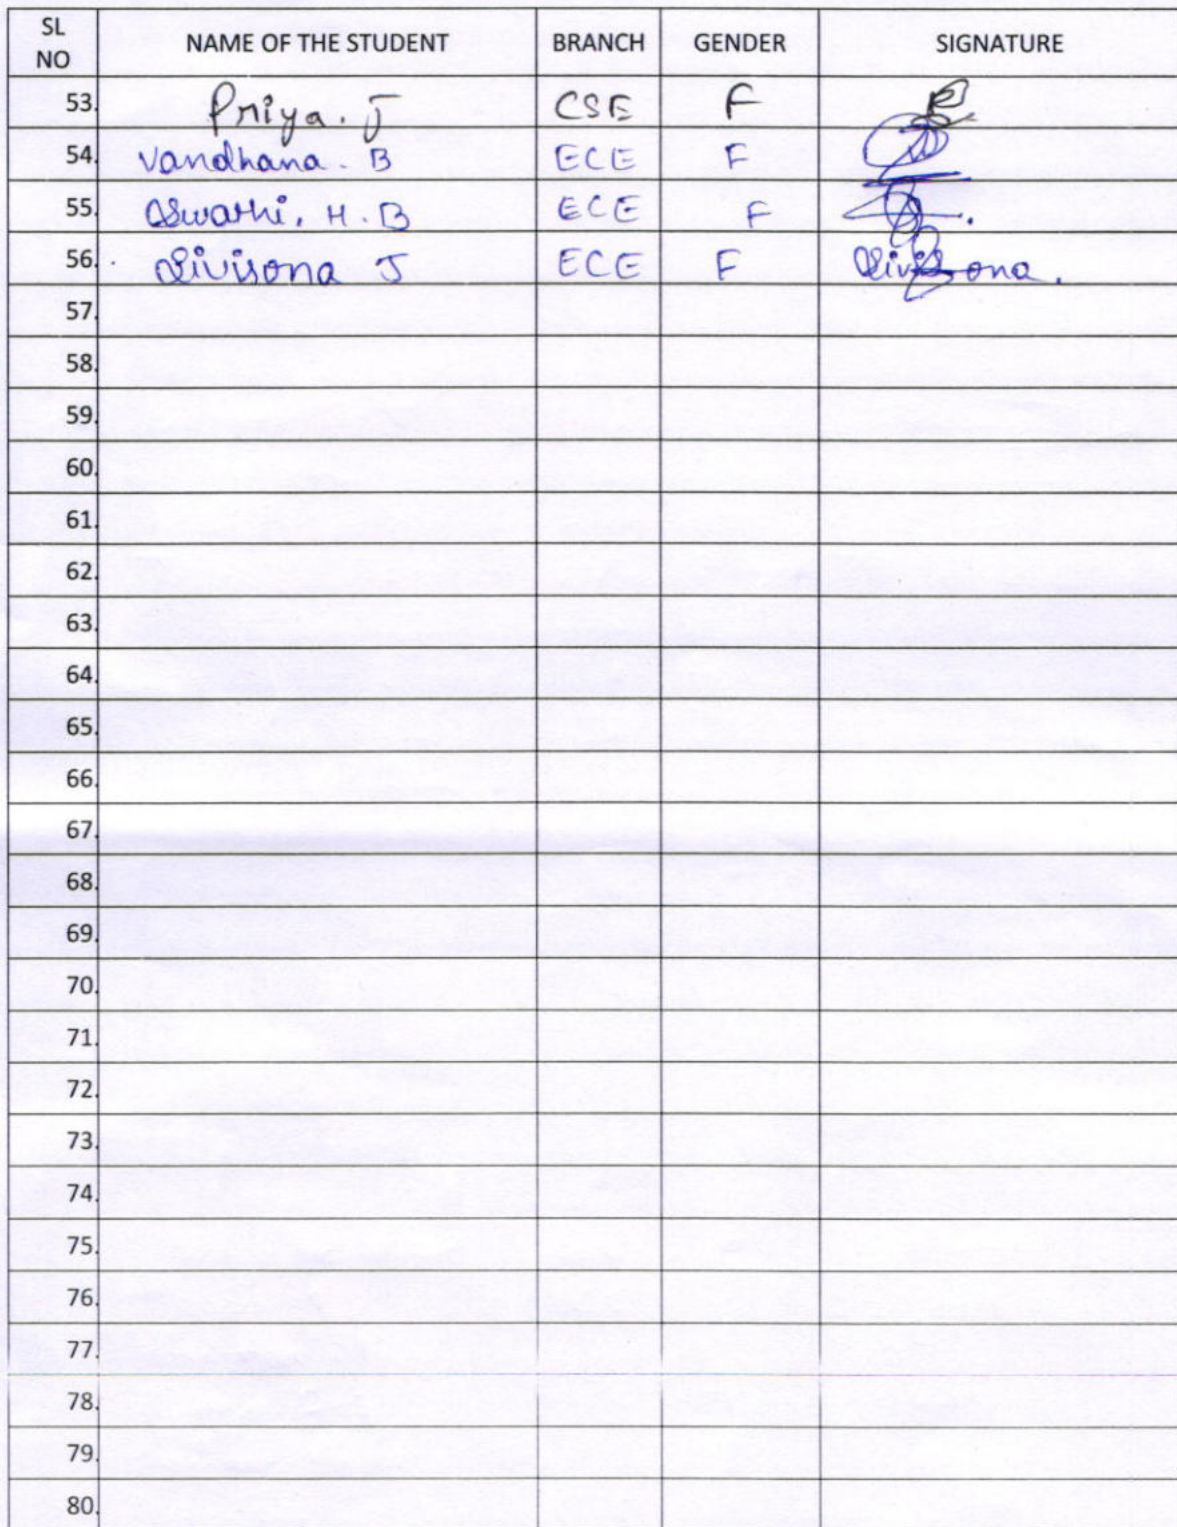 SL NO NAME OF THE STUDENT BRANCH GENDER SIGNATURE
53. Priya. J CSE F
54. Vandhana. B ECE F
55. Swathi. H. B ECE F
56. J ECE F
57.
58.
59.
60.
61.
62.
63.
64.
65.
66.
67.
68.
69.
70.
71.
72.
73.
74.
75.
76.
77.
78.
79.
80.